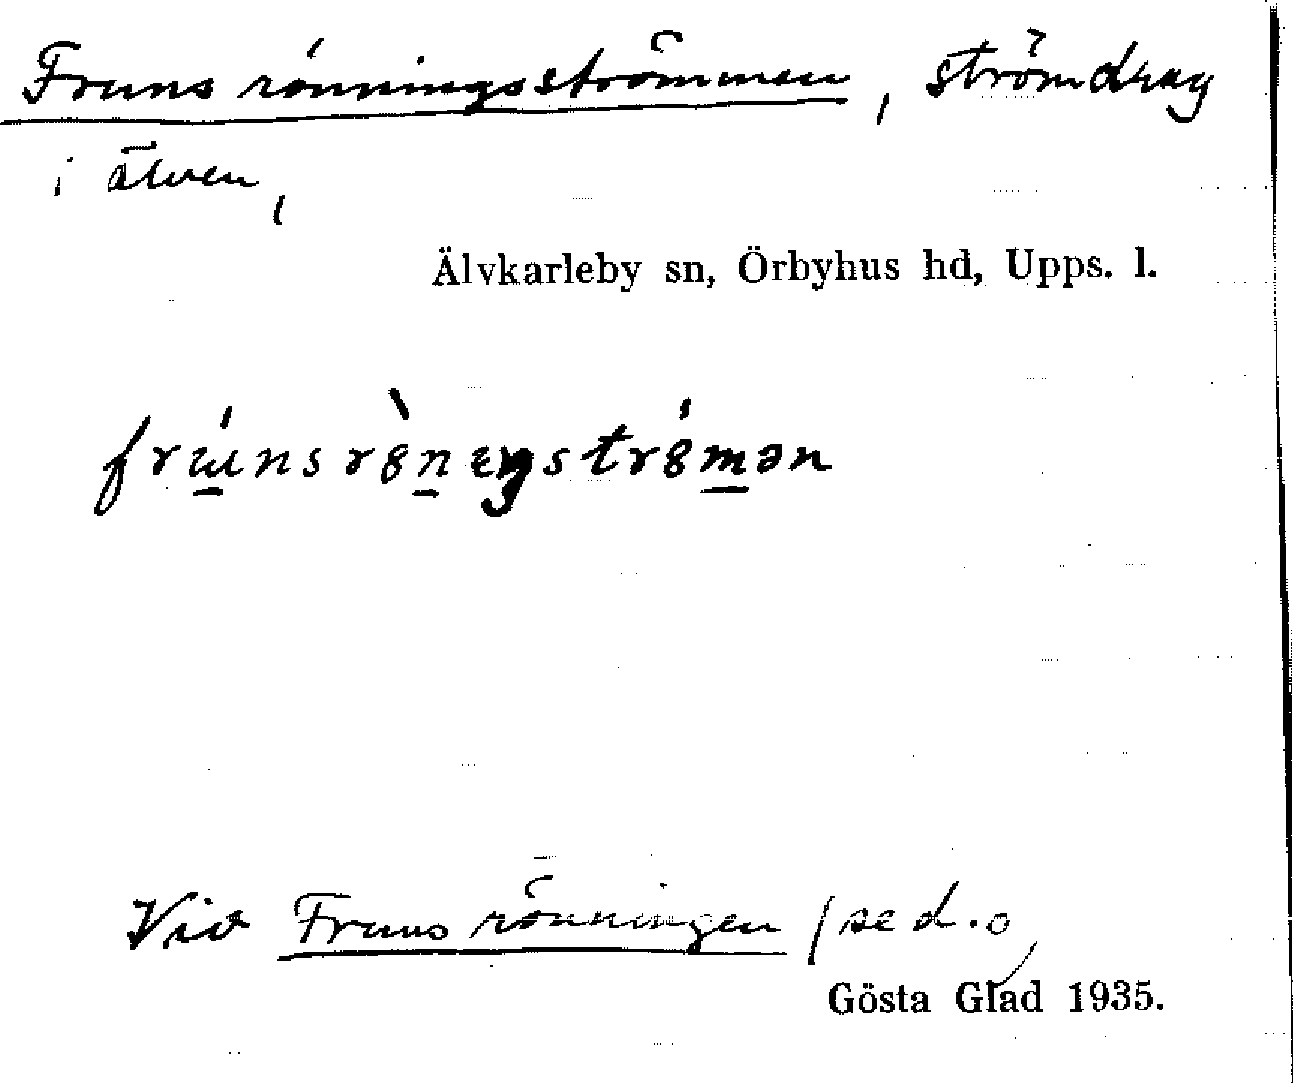 Fruns rönningsströmmen, strömdrag
i älven,
Älvkarleby sn, Örbyhus hd, Upps. l.
Vid Fruns rönningen (se d.o)
Gösta Glad 1935.